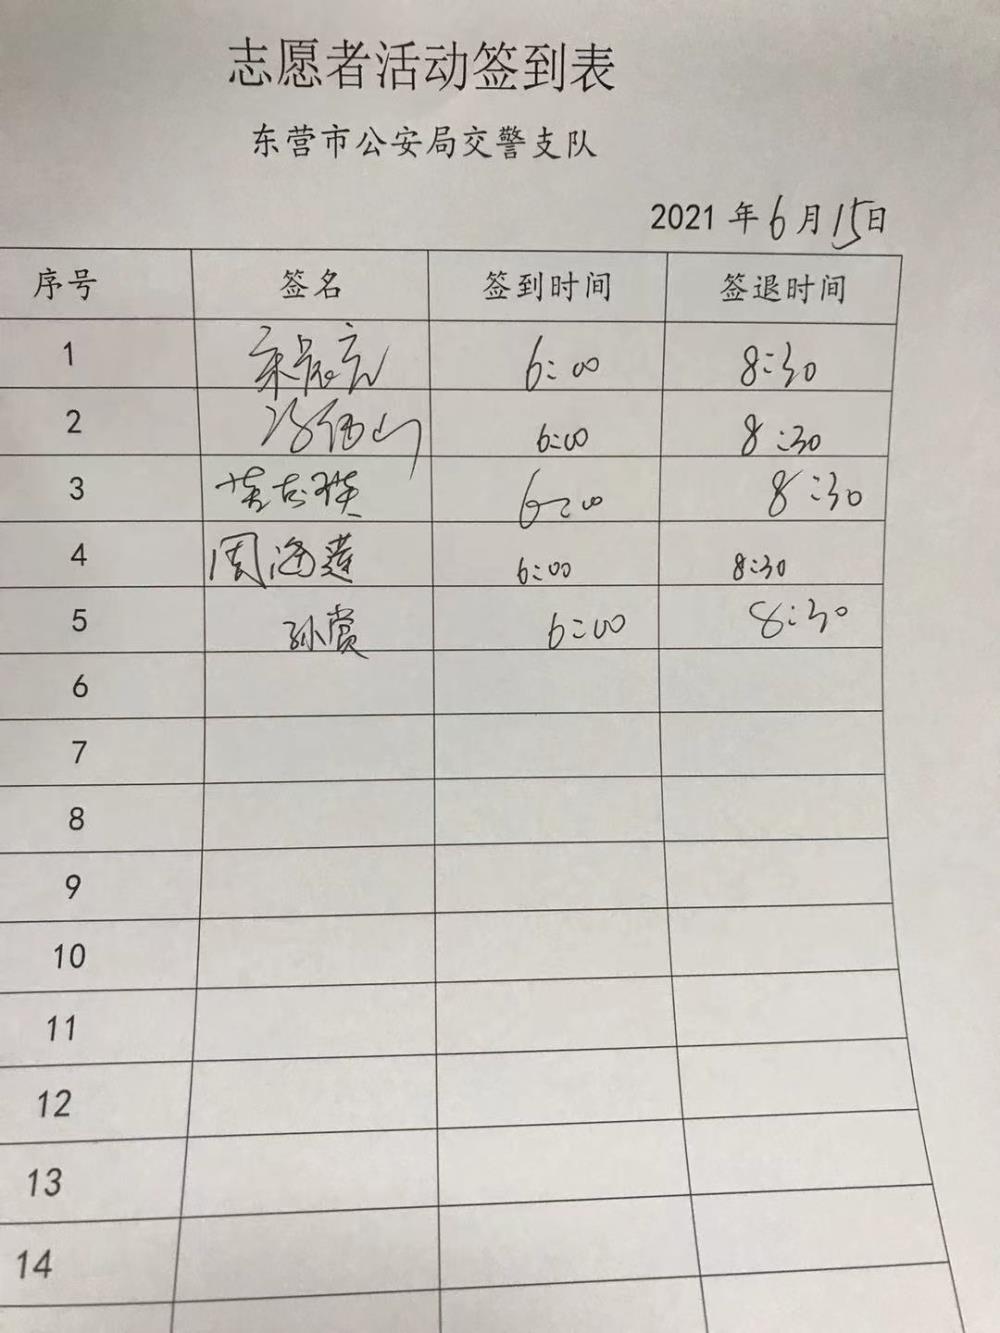 志愿者活动签到表
东营市公安局交警支队
2021 年 6 月 15 日
序号 签名 签到时间 签退时间
1 6:00 8:30
2 山 6:00 8:30
3 6:00 8:30
4 周海莲 6:00 8:30
5 孙赏 6:00 8:30
6
7
8
9
10
11
12
13
14